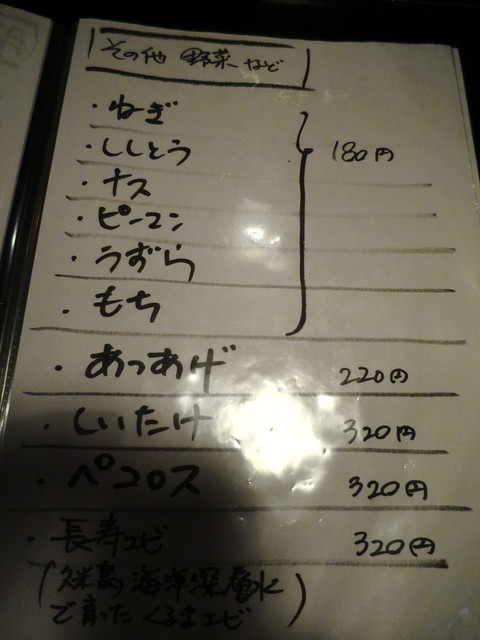 その他 野菜 など
・ねぎ
・ししとう 180円
・ナス
・ピーマン
・うずら
・もち
・あつあげ 220円
・しいたけ 320円
・ペコロス 320円
・長寿エビ 320円
(久米島 海洋深層水
で育った くるまエビ)